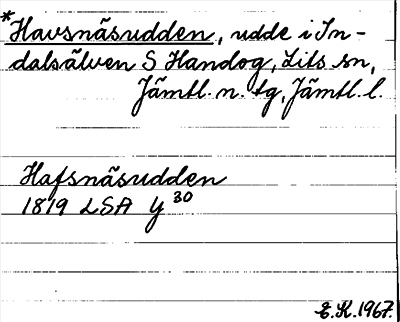 *Havsnäsudden, udde i In-
dalsälven S Handog, Lits sn,
Jämtl. n. tg, Jämtl. l.
Hafsnäsudden
1819 LSA Y 30
E.K. 1967.